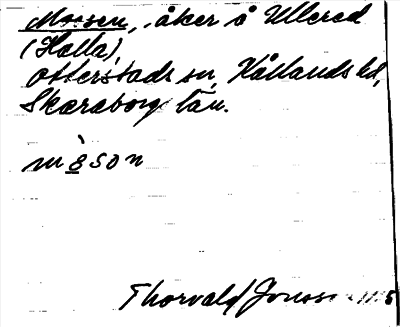 Mossen, åker å Ullered
(Halla),
Otterstads sn, Kållands hd,
Skaraborgs län.
mòson
Thorvald Jonsson